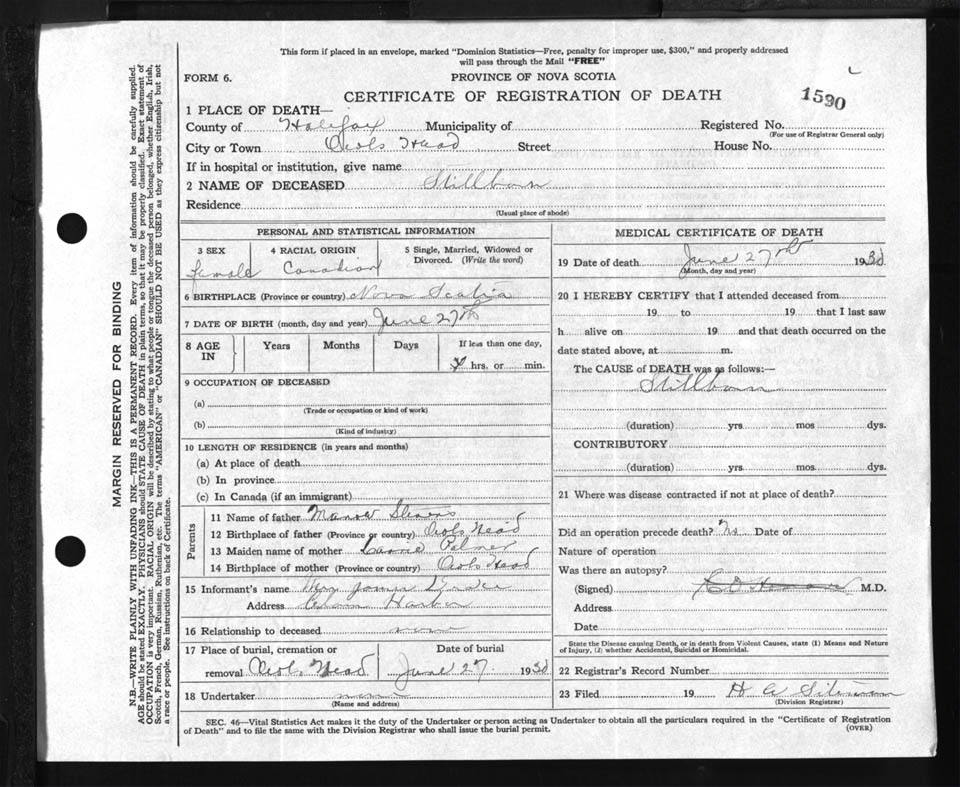 This form if placed in an envelope, marked "Dominion Statistics—Free, penalty for improper use, $300," and properly addressed
will pass through the Mail "FREE"
FORM 6.
PROVINCE OF NOVA SCOTIA
CERTIFICATE OF REGISTRATION OF DEATH
1590
1 PLACE OF DEATH—
County of Halifax Municipality of Registered No.
(For use of Registrar General only)
City or Town Owls Head Street House No.
If in hospital or institution, give name
2 NAME OF DECEASED Stillborn
Residence
(Usual place of abode)
PERSONAL AND STATISTICAL INFORMATION
3 SEX 4 RACIAL ORIGIN 5 Single, Married, Widowed or
Divorced. (Write the word)
female Canadian
6 BIRTHPLACE (Province or country) Nova Scotia
7 DATE OF BIRTH (month, day and year) June 27th
8 AGE IN Years Months Days If less than one day,
hrs. or min.
9 OCCUPATION OF DECEASED
(a)
(Trade or occupation or kind of work)
(b)
(Kind of industry)
10 LENGTH OF RESIDENCE (in years and months)
(a) At place of death
(b) In province
(c) In Canada (if an immigrant)
Parents
11 Name of father
12 Birthplace of father (Province or country) Owls Head
13 Maiden name of mother Carrie Palmer
14 Birthplace of mother (Province or country) Owls Head
15 Informant's name Mrs James
Address Harbor
16 Relationship to deceased
17 Place of burial, cremation or
removal Owls Head
Date of burial
June 27 1930
18 Undertaker
(Name and address)
MEDICAL CERTIFICATE OF DEATH
19 Date of death June 27th 1930
(Month, day and year)
20 I HEREBY CERTIFY that I attended deceased from
19 to 19 that I last saw
h alive on 19 and that death occurred on the
date stated above, at m.
The CAUSE of DEATH was as follows:—
Stillborn
(duration) yrs mos dys.
CONTRIBUTORY
(duration) yrs mos dys.
21 Where was disease contracted if not at place of death?
Did an operation precede death? No Date of
Nature of operation
Was there an autopsy?
(Signed) M.D.
Address
Date
State the Disease causing Death, or in death from Violent Causes, state (1) Means and Nature
of Injury, (2) whether Accidental, Suicidal or Homicidal.
22 Registrar's Record Number
23 Filed 19 H A
(Division Registrar)
SEC. 46—Vital Statistics Act makes it the duty of the Undertaker or person acting as Undertaker to obtain all the particulars required in the "Certificate of Registration
of Death" and to file the same with the Division Registrar who shall issue the burial permit.
(OVER)
MARGIN RESERVED FOR BINDING
N.B.—WRITE PLAINLY WITH UNFADING INK—THIS IS A PERMANENT RECORD. Every item of information should be carefully supplied.
AGE should be stated EXACTLY. PHYSICIANS should STATE CAUSE OF DEATH in plain terms, so that it may be properly classified. Exact statement of
OCCUPATION is very important. RACIAL ORIGIN will be described by stating to what people or tongue the deceased person belonged, whether English, Irish,
Scotch, French, German, Russian, Ruthenian, etc. The terms "AMERICAN" or "CANADIAN" SHOULD NOT BE USED as they express citizenship but not
a race or people. See instructions on back of Certificate.